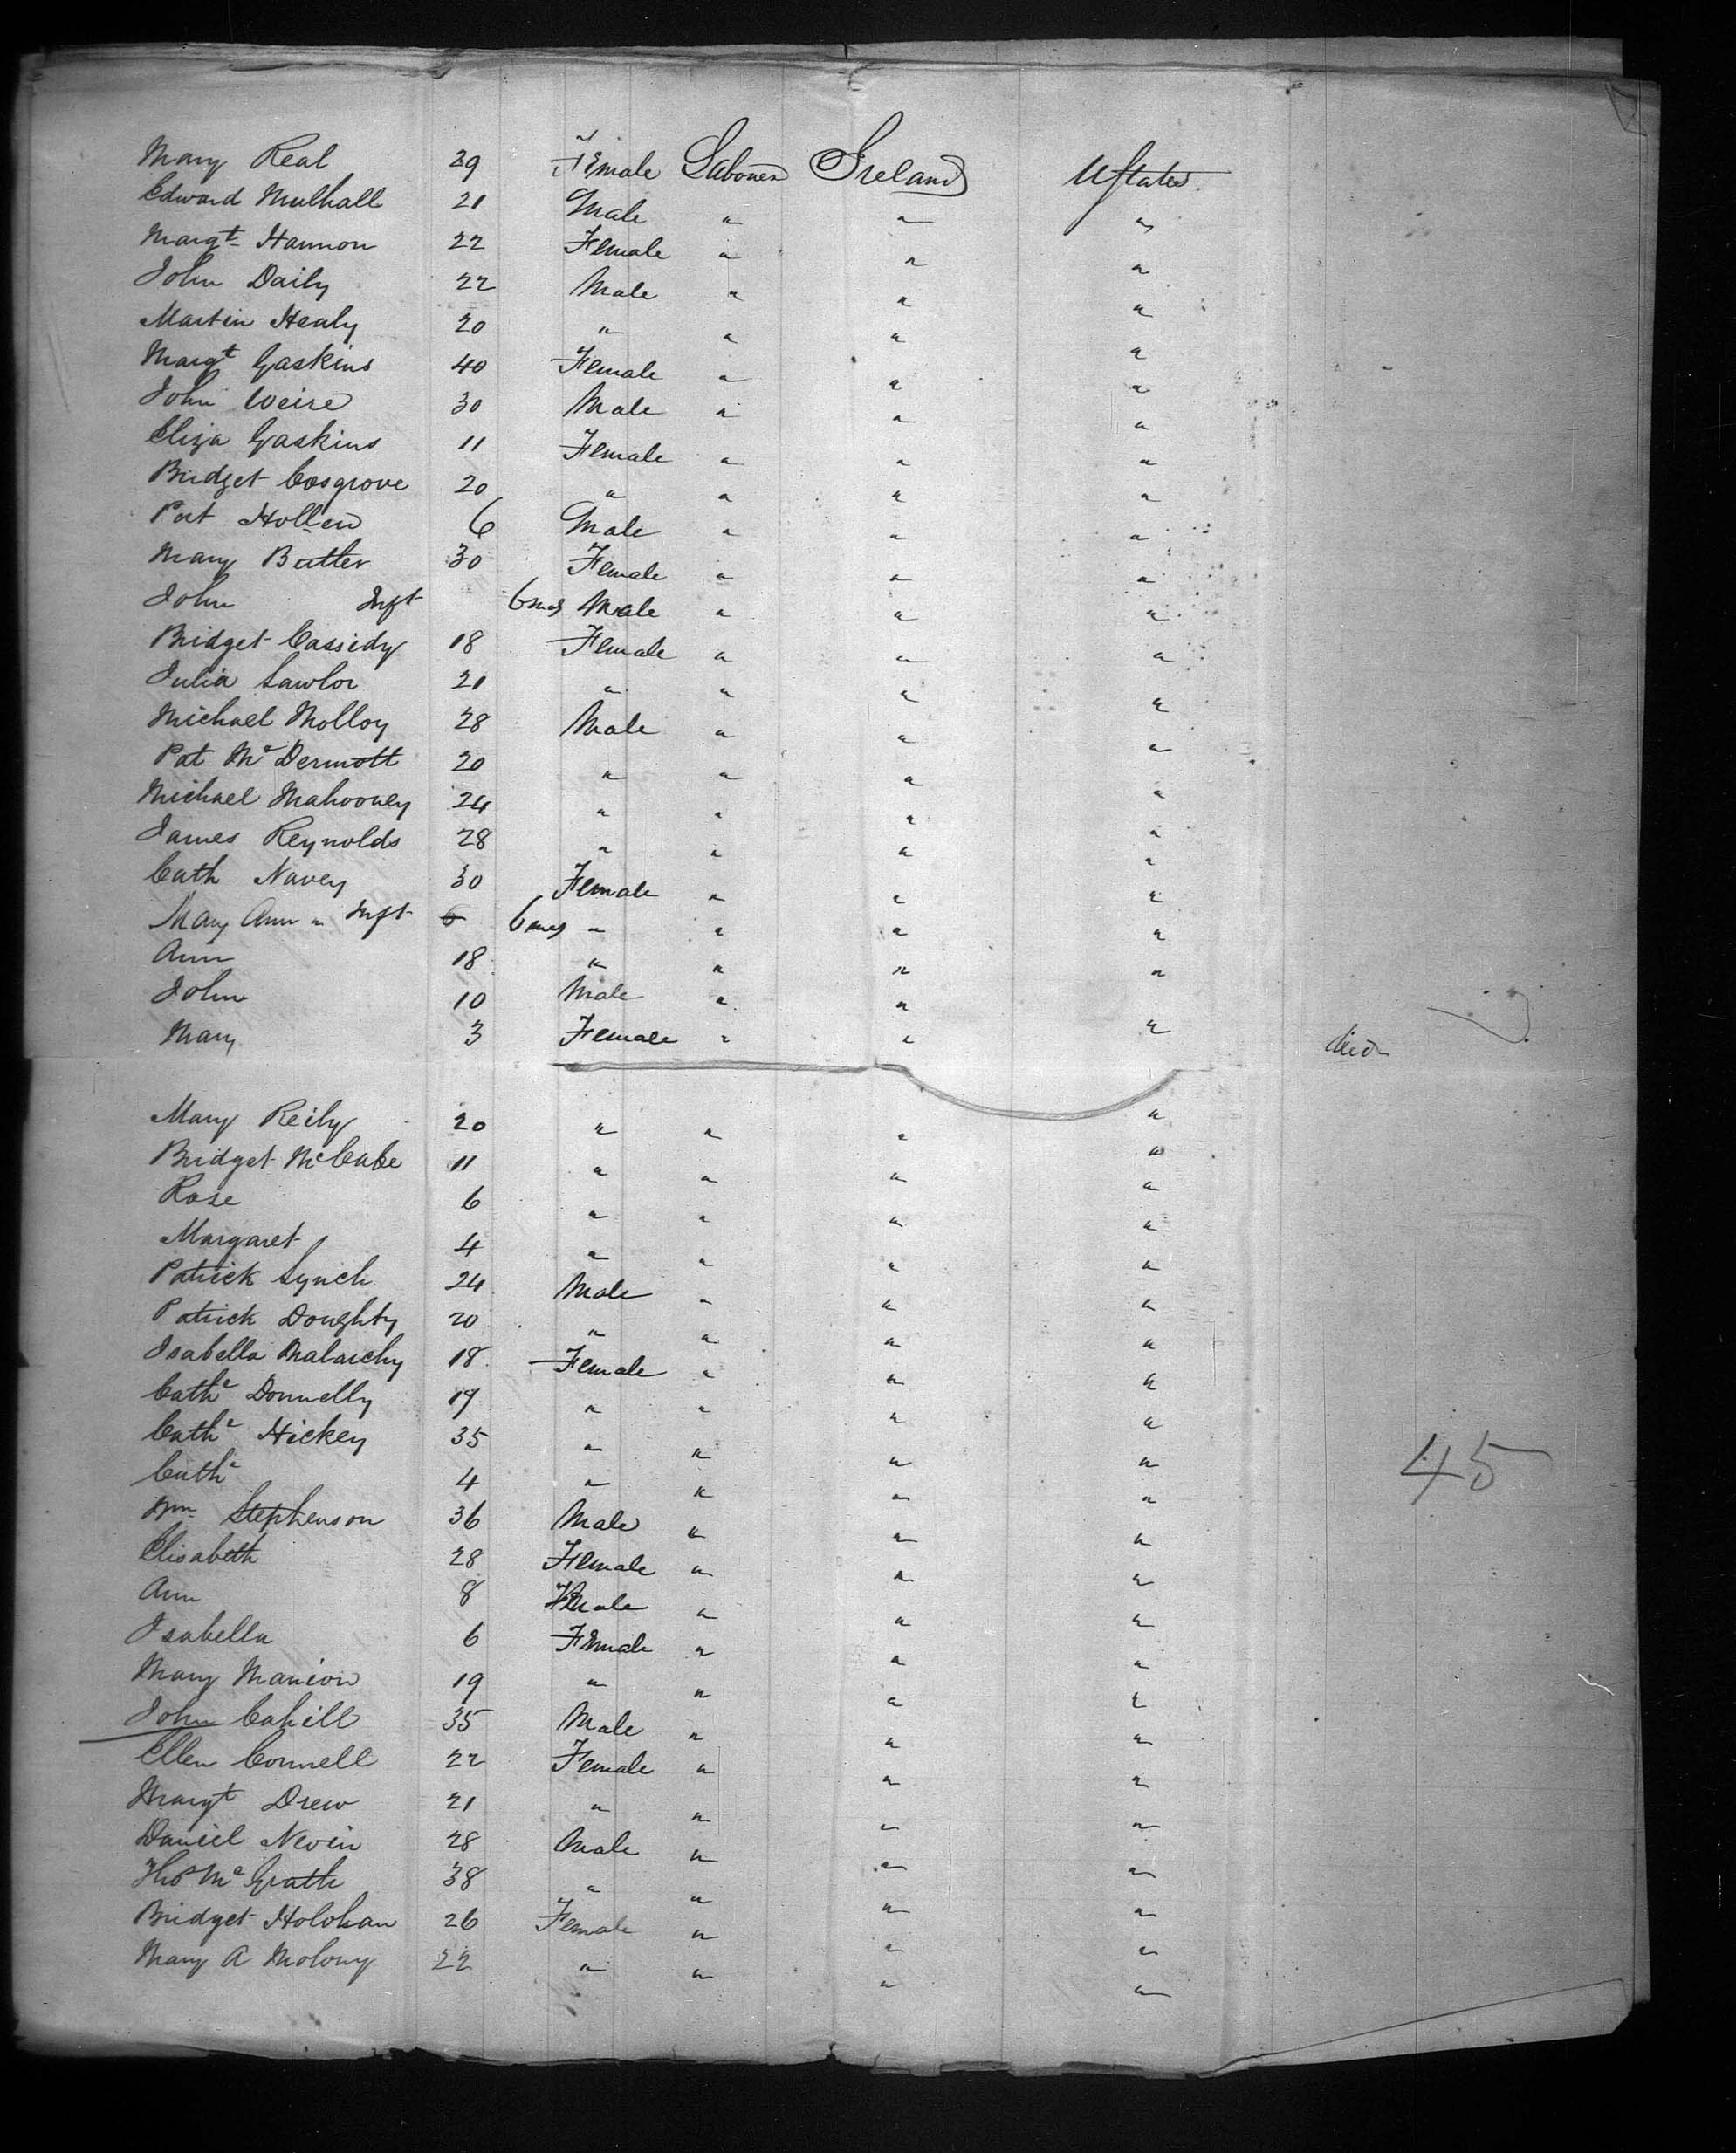 Mary Real 29 Female Labourer Ireland U States
Edward Mulhall 21 Male " " "
Margt Hannon 22 Female " " "
John Daily 22 Male " " "
Martin Healy 20 " " " "
Margt Gaskins 40 Female " " "
John Weire 30 Male " " "
Eliza Gaskins 11 Female " " "
Bridget Cosgrove 20 " " " "
Pat Hollen 6 Male " " "
Mary Butler 30 Female " " "
John Inft 6 mos Male " " "
Bridget Cassidy 18 Female " " "
Julia Lawlor 21 " " " "
Michael Molloy 28 Male " " "
Pat McDermott 20 " " " "
Michael Mahooney 24 " " " "
James Reynolds 28 " " " "
Cath Navey 30 Female " " "
Mary Ann " Inft 6 6 mos " " " "
Ann 18 " " " "
John 10 Male " " "
Mary 3 Female " " " Died
Mary Reily 20 " " " "
Bridget McCabe 11 " " " "
Rose 6 " " " "
Margaret 4 " " " "
Patrick Lynch 24 Male " " "
Patrick Doughty 20 " " " "
Isabella Malarchy 18 Female " " "
Cathe Donnelly 19 " " " "
Cathe Hickey 35 " " " "
Cathe 4 " " " " 45
Wm Stephenson 36 Male " " "
Elisabeth 28 Female " " "
Ann 8 Female " " "
Isabella 6 Female " " "
Mary Manion 19 " " " "
John Cahill 35 Male " " "
Ellen Connell 22 Female " " "
Margt Drew 21 " " " "
Daniel Nevin 28 Male " " "
Thos McGrath 38 " " " "
Bridget Holohan 26 Female " " "
Mary A Molony 22 " " " "